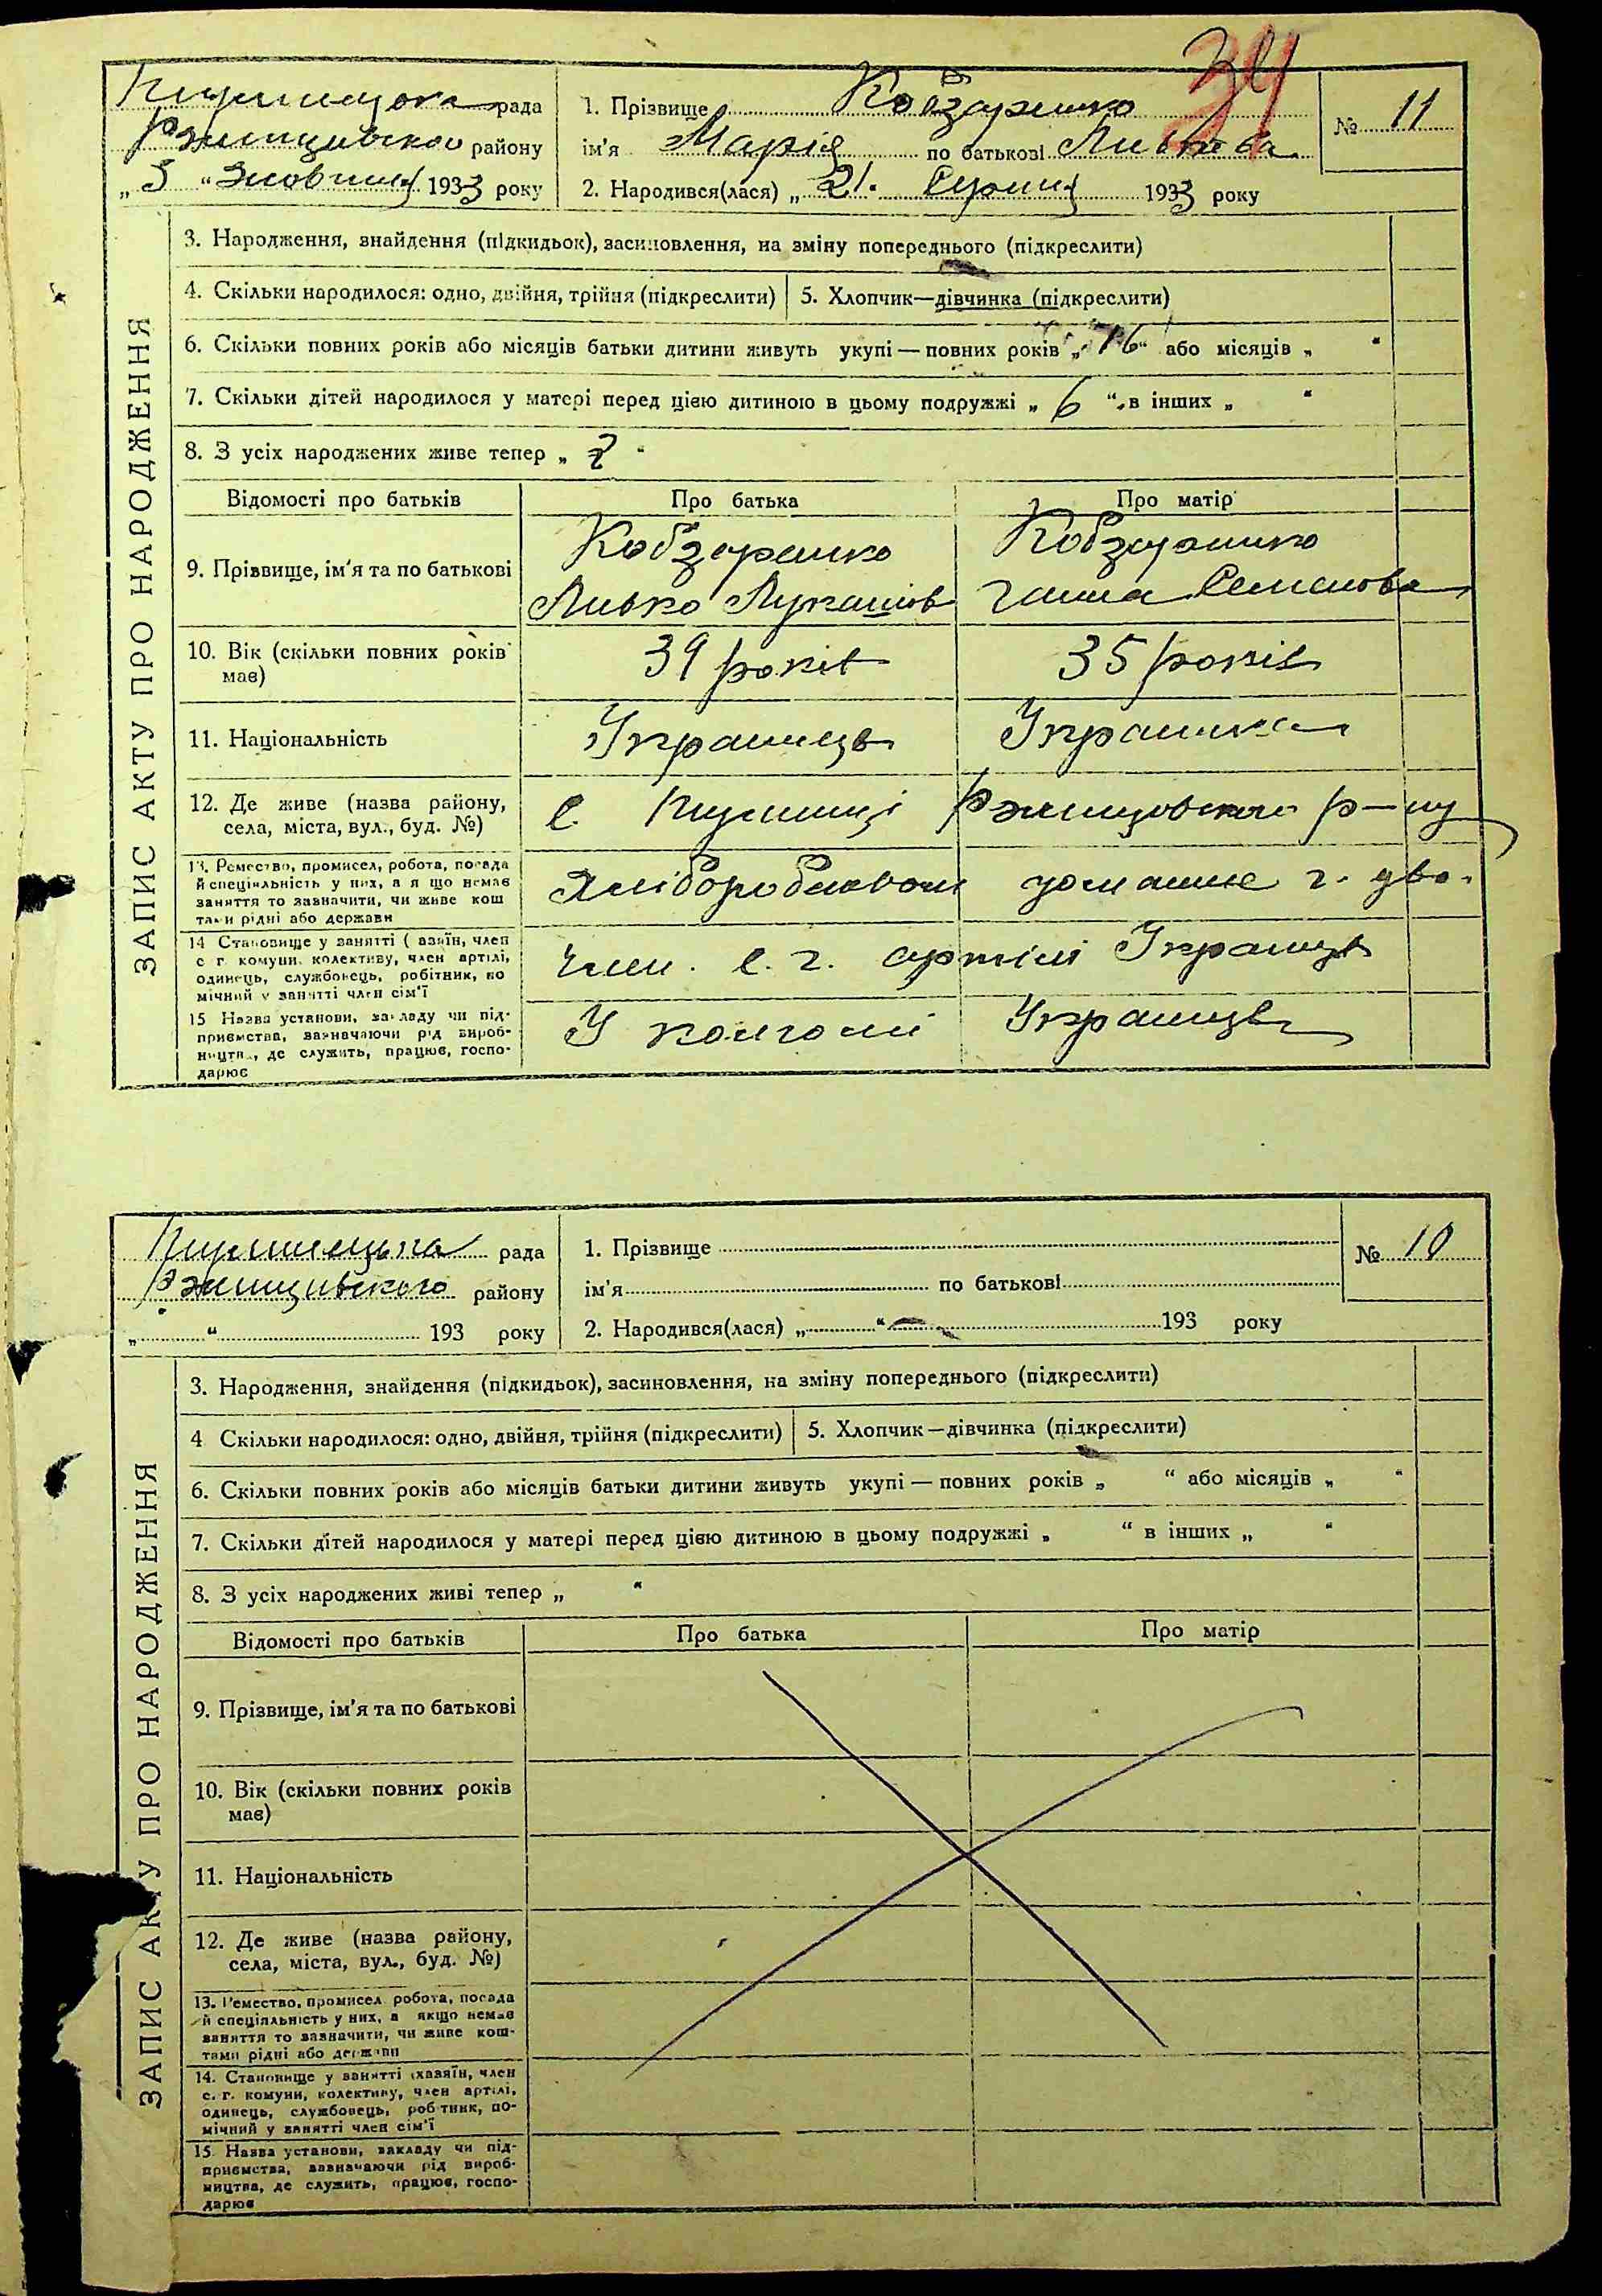 34
рада
Ржищівського району
„ 3 “ Жовтня 1933 року
1. Прізвище Кобзаренко
ім'я Марія по батькові
2. Народився(лася) „ 21. Серпня 1933 року
№ 11
ЗАПИС АКТУ ПРО НАРОДЖЕННЯ
3. Народження, знайдення (підкидьок), засиновлення, на зміну попереднього (підкреслити)
4. Скільки народилося: одно, двійня, трійня (підкреслити) 5. Хлопчик—дівчинка (підкреслити)
6. Скільки повних років або місяців батьки дитини живуть укупі — повних років „ 16 “ або місяців „ “
7. Скільки дітей народилося у матері перед цією дитиною в цьому подружжі „ 6 “, в інших „ “
8. З усіх народжених живе тепер „ “
Відомості про батьків Про батька Про матір
9. Прізвище, ім'я та по батькові
Кобзаренко Кобзаренко
Лукашов Ганна Семенова
10. Вік (скільки повних років має) 39 років 35 років
11. Національність Українець Українка
12. Де живе (назва району, села, міста, вул., буд. №)
с. Ржищовського р-ну
13. Ремество, промисел, робота, посада
й спеціяльність у них, а якщо немає
заняття то зазначити, чи живе кош
тами рідні або держави
14 Становище у занятті (хазяїн, член
с г. комуни, колективу, член артілі,
одинець, службовець, робітник, по
мічний у занятті член сім'ї
Член. с. г. артілі Українець
15 Назва установи, закладу чи під-
приємства, зазначаючи рід вироб-
ництв., де служить, працює, госпо-
дарює
У Українець
рада
Ржищівського району
„ “ 193 року
1. Прізвище
ім'я по батькові
2. Народився(лася) „ “ 193 року
№ 10
ЗАПИС АКТУ ПРО НАРОДЖЕННЯ
3. Народження, знайдення (підкидьок), засиновлення, на зміну попереднього (підкреслити)
4 Скільки народилося: одно, двійня, трійня (підкреслити) 5. Хлопчик—дівчинка (підкреслити)
6. Скільки повних років або місяців батьки дитини живуть укупі — повних років „ “ або місяців „ “
7. Скільки дітей народилося у матері перед цією дитиною в цьому подружжі „ “ в інших „ “
8. З усіх народжених живі тепер „ “
Відомості про батьків Про батька Про матір
9. Прізвище, ім'я та по батькові
10. Вік (скільки повних років
має)
11. Національність
12. Де живе (назва району,
села, міста, вул., буд. №)
13. Ремество, промисел робота, посада
й спеціяльність у них, а якщо немає
заняття то зазначити, чи живе кош-
тами рідні або держави
14. Становище у занятті (хазяїн, член
с. г. комуни, колективу, член артілі,
одинець, службовець, робітник, по-
мічний у занятті член сім'ї
15 Назва установи, закладу чи під-
приємства, зазначаючи рід вироб-
ництва, де служить, працює, госпо-
дарює